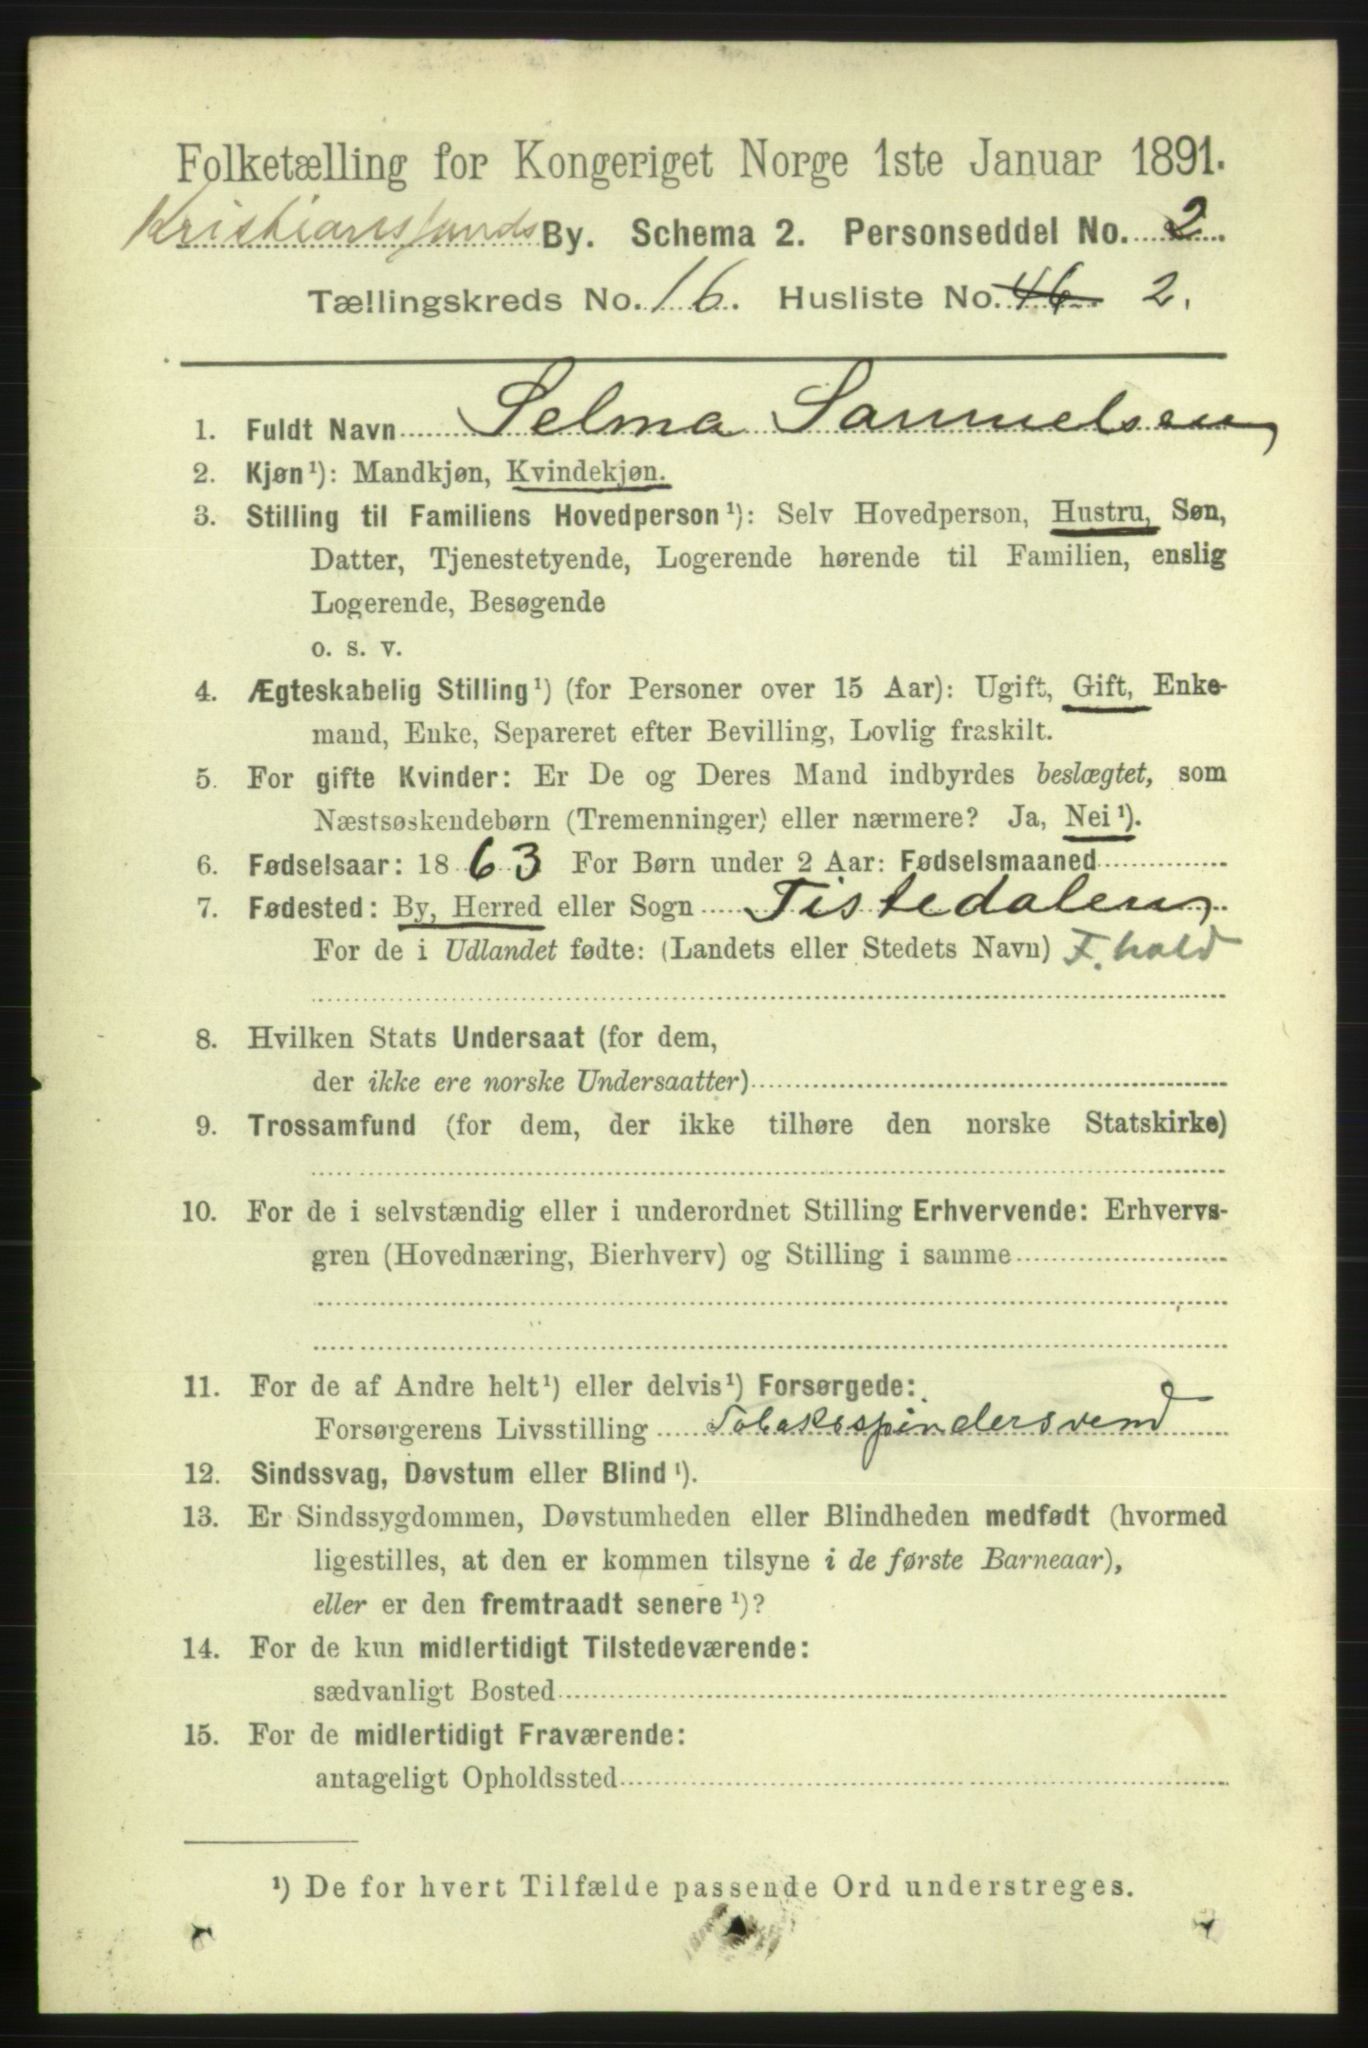 Folketælling for Kongeriget Norge 1ste Januar 1891.
Kristianssands By. Schema 2. Personseddel No. 2
Tællingskreds No. 16. Husliste No. 46 2.
1. Fuldt Navn Selma Samuelsen
2. Kjøn¹): Mandkjøn, Kvindekjøn.
3. Stilling til Familiens Hovedperson¹): Selv Hovedperson, Hustru, Søn,
Datter, Tjenestetyende, Logerende hørende til Familien, enslig
Logerende, Besøgende
o. s. v.
4. Ægteskabelig Stilling¹) (for Personer over 15 Aar): Ugift, Gift, Enke-
mand, Enke, Separeret efter Bevilling, Lovlig fraskilt.
5. For gifte Kvinder: Er De og Deres Mand indbyrdes beslægtet, som
Næstsøskendebørn (Tremenninger) eller nærmere? Ja, Nei¹).
6. Fødselsaar: 1863 For Børn under 2 Aar: Fødselsmaaned
7. Fødested: By, Herred eller Sogn Tistedalen
For de i Udlandet fødte: (Landets eller Stedets Navn) F.hald
8. Hvilken Stats Undersaat (for dem,
der ikke ere norske Undersaatter)
9. Trossamfund (for dem, der ikke tilhøre den norske Statskirke)
10. For de i selvstændig eller i underordnet Stilling Erhvervende: Erhvervs-
gren (Hovednæring, Bierhverv) og Stilling i samme
11. For de af Andre helt¹) eller delvis¹) Forsørgede:
Forsørgerens Livsstilling Tobaksspindersvend
12. Sindssvag, Døvstum eller Blind¹).
13. Er Sindssygdommen, Døvstumheden eller Blindheden medfødt (hvormed
ligestilles, at den er kommen tilsyne i de første Barneaar),
eller er den fremtraadt senere¹)?
14. For de kun midlertidigt Tilstedeværende:
sædvanligt Bosted
15. For de midlertidigt Fraværende:
antageligt Opholdssted
¹) De for hvert Tilfælde passende Ord understreges.